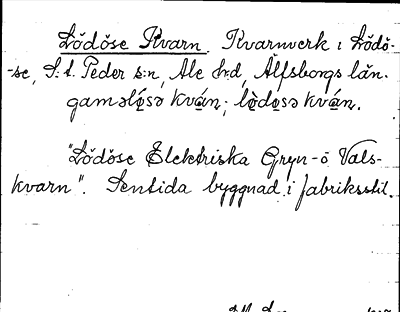 Lödöse Kvarn. Kvarnverk i Lödö-
-se, S:t Peder s:n, Ale h:d, Älfsborgs län.
gamələ́sə kván; lø̀dəsə kván.
"Lödöse Elektriska Gryn- o Vals-
kvarn". Sentida byggnad i fabriksstil.